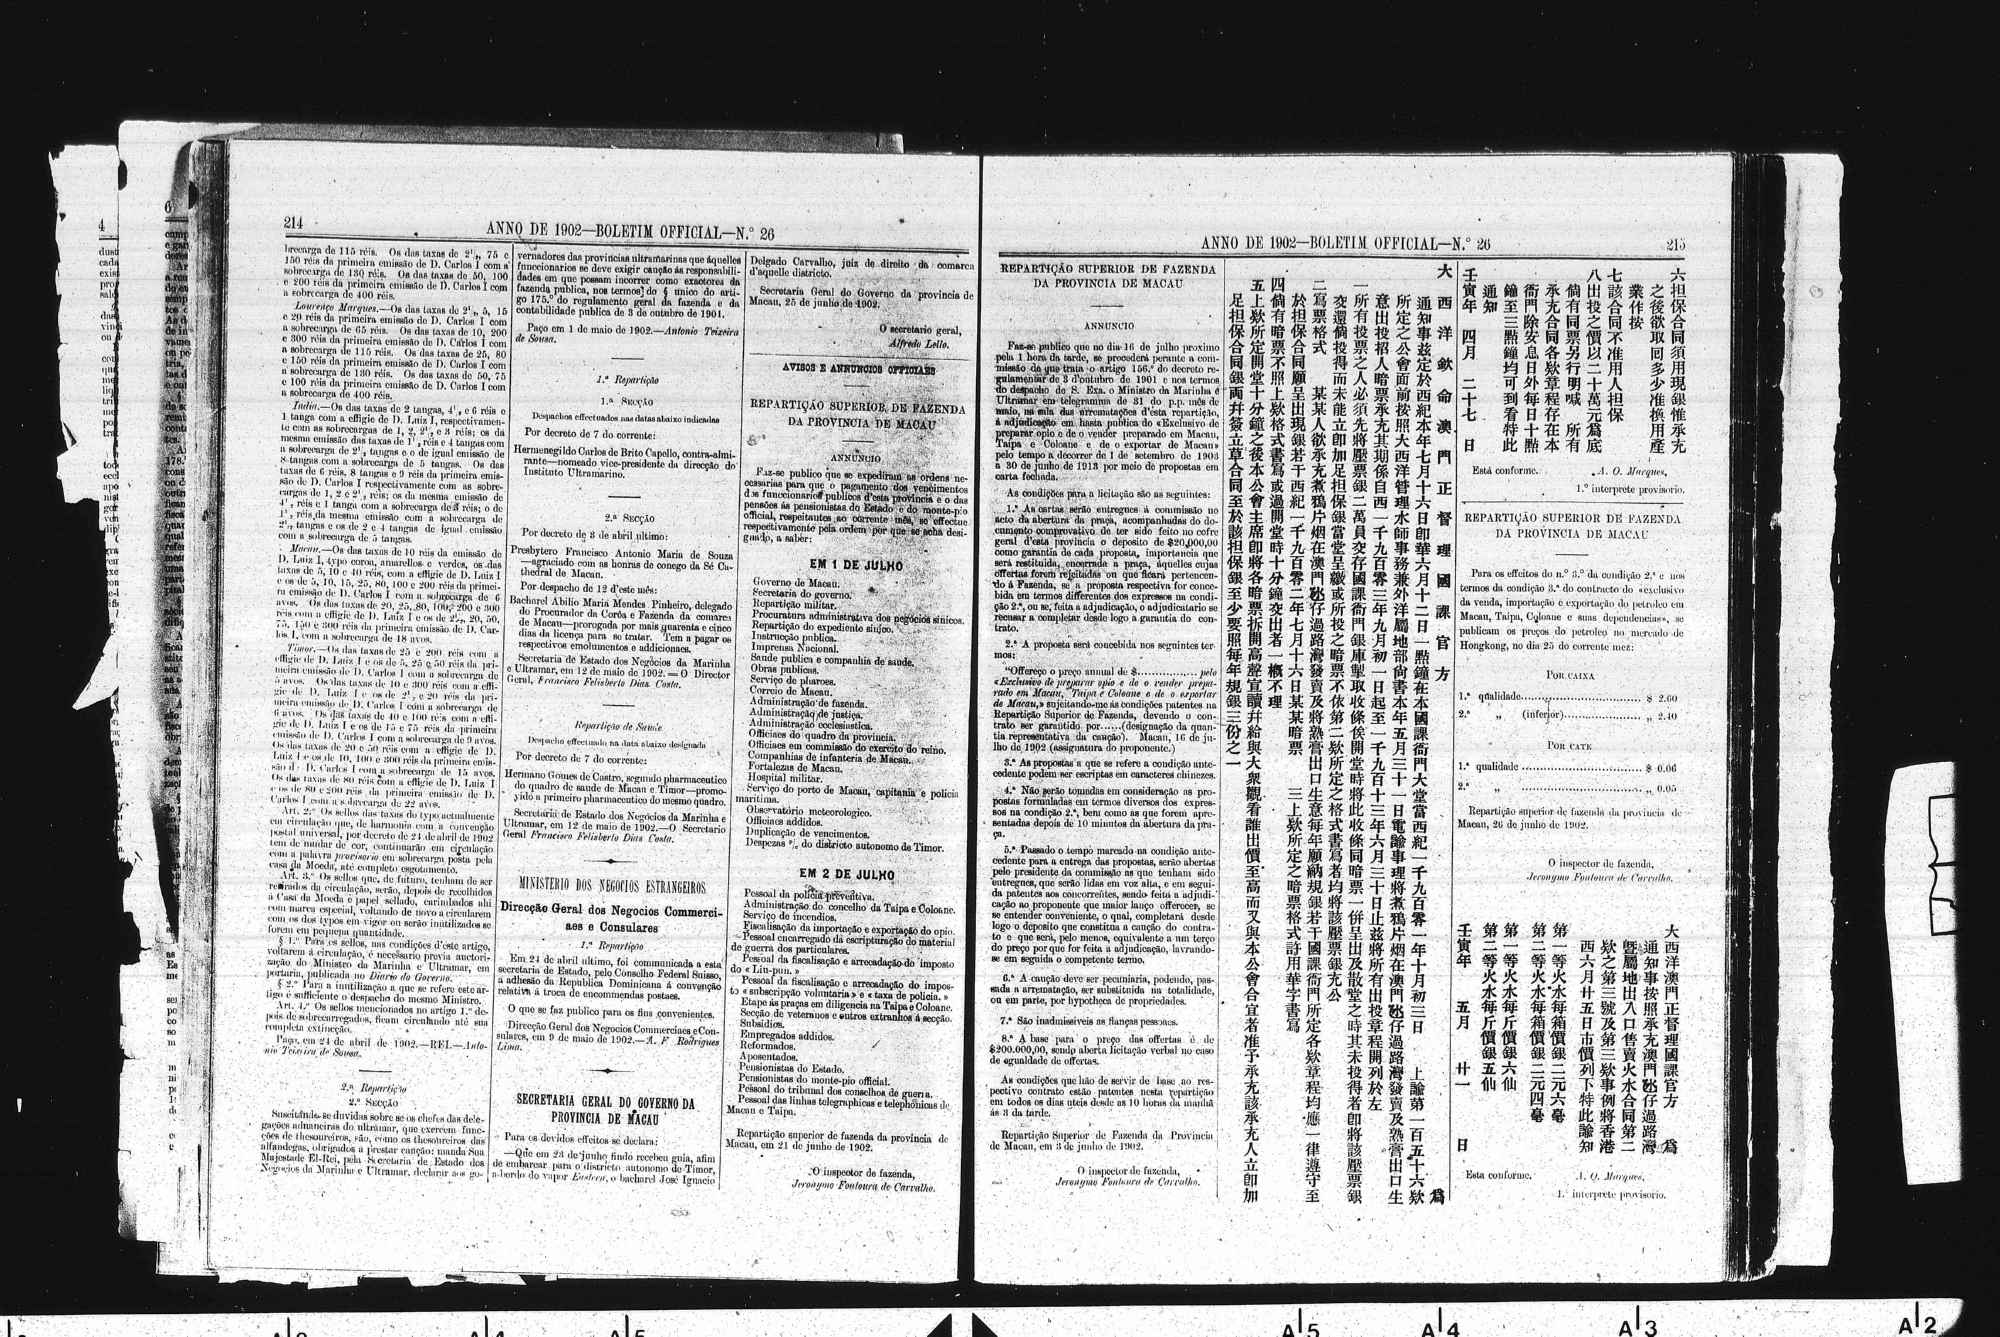 214
ANNO DE 1902—BOLETIM OFFICIAL—N.º 26
brecarga de 115 réis. Os das taxas de 2½, 75 e
150 réis da primeira emissão de D. Carlos I com a
sobrecarga de 130 réis. Os das taxas de 50, 100
e 200 réis da primeira emissão de D. Carlos I com
a sobrecarga de 400 réis.
Lourenço Marques.—Os das taxas de 2½, 5, 15
e 20 réis da primeira emissão de D. Carlos I com
a sobrecarga de 65 réis. Os das taxas de 10, 200
e 300 réis da primeira emissão de D. Carlos I com
a sobrecarga de 115 réis. Os das taxas de 25, 80
e 150 réis da primeira emissão de D. Carlos I com
a sobrecarga de 130 réis. Os das taxas de 50, 75
e 100 réis da primeira emissão de D. Carlos I com
a sobrecarga de 400 réis.
India.—Os das taxas de 2 tangas, 4½, e 6 réis e
1 tanga com a effigie de D. Luiz I, respectivamen-
te com as sobrecargas de 1, 2, 2½, e 3 réis; os da
mesma emissão das taxas de 1½, réis e 4 tangas com
a sobrecarga de 2½, tangas e o de igual emissão de
8 tangas com a sobrecarga de 5 tangas. Os das
taxas de 6 réis, 8 tangas e 9 réis da primeira emis-
são de D. Carlos I respectivamente com as sobre-
cargas de 1, 2 e 2½, réis; os da mesma emissão de
4½, réis e 1 tanga com a sobrecarga de 3 réis; o de
1½, réis da mesma emissão com a sobrecarga de
2½, tangas e os de 2 e 4 tangas de igual emissão
com a sobrecarga de 5 tangas.
Macau.—Os das taxas de 10 réis da emissão de
D. Luiz I, typo coroa, amarellos e verdes, os das
taxas de 5, 10 e 40 réis, com a effigie de D. Luiz I
e os de 5, 10, 15, 25, 80, 100 e 200 réis da primei-
ra emissão de D. Carlos I com a sobrecarga de 6
avos. Os das taxas de 20, 25, 80, 100, 200 e 300
réis com a effigie de D. Luiz I e os de 2½, 20, 50,
75, 150 e 300 réis da primeira emissão de D. Car-
los I, com a sobrecarga de 18 avos.
Timor.—Os das taxas de 25 e 200 réis com a
effigie de D. Luiz I e os de 5, 25 e 50 réis da pri-
meira emissão de D. Carlos I com a sobrecarga de
5 avos. Os das taxas de 10 e 300 réis com a effi-
gie de D. Luiz I e os de 2½, e 20 réis da pri-
meira emissão de D. Carlos I com a sobrecarga de
6 avos. Os das taxas de 40 e 100 réis com a effi-
gie de D. Luiz I e os de 15 e 75 réis da primeira
emissão de D. Carlos I com a sobrecarga de 9 avos.
Os das taxas de 20 e 50 réis com a effigie de D.
Luiz I e os de 10, 100 e 300 réis da primeira emis-
são de D. Carlos I com a sobrecarga de 15 avos.
Os das taxas de 80 réis com a effigie de D. Luiz I
e os de 80 e 200 réis da primeira emissão de D.
Carlos I com a sobrecarga de 22 avos.
Art. 2.º Os sellos das taxas do typo actualmente
em circulação que, de harmonia com a convenção
postal universal, por decreto de 24 de abril de 1902
tem de mudar de cor, continuarão em circulação
com a palavra provisorio em sobrecarga posta pela
casa da Moeda, até completo esgotamento.
Art. 3.º Os sellos que, de futuro, tenham de ser
retirados da circulação, serão, depois de recolhidos
á Casa da Moeda e papel sellado, carimbados ahi
com marca especial, voltando de novo a circularem
com os dos typos em vigor ou serão inutilizados se
forem em pequena quantidade.
§ 1.º Para os sellos, nas condições d'este artigo,
voltarem á circulação, é necessario previa auctori-
zação do Ministro da Marinha e Ultramar, em
portaria, publicada no Diario do Governo.
§ 2.º Para a inutilização a que se refere este ar-
tigo é sufficiente o despacho do mesmo Ministro.
Art. 4.º Os sellos mencionados no artigo 1.º de-
pois de sobrecarregados, ficam circulando até sua
completa extincção.
Paço, em 24 de abril de 1902.—REI.—Anto-
nio Teixeira de Sousa.
2.ª Repartição
2.ª SECÇÃO
Suscitando-se duvidas sobre se os chefes das dele-
gações aduaneiras do ultramar, que exercem func-
ções de thesoureiros, são, como os thesoureiros das
alfandegas, obrigados a prestar canção: manda Sua
Majestade El-Rei, pela Secretaria de Estado dos
Negocios da Marinha e Ultramar, declarar aos go-
vernadores das provincias ultramarinas que áquelles
funccionarios se deve exigir canção ás responsabili-
dades em que possam incorrer como exactores da
fazenda publica, nos termos do § unico do arti-
go 175.º do regulamento geral da fazenda e da
contabilidade publica de 3 de outubro de 1901.
Paço em 1 de maio de 1902.—Antonio Teixeira
de Sousa.
1.ª Repartição
1.ª SECÇÃO
Despachos effectuados nas datas abaixo indicadas
Por decreto de 7 do corrente:
Hermenegildo Carlos de Brito Capello, contra-almi-
rante—nomeado vice-presidente da direcção do
Instituto Ultramarino.
2.ª SECÇÃO
Por decreto de 3 de abril ultimo:
Presbytero Francisco Antonio Maria de Souza
—agraciado com as honras de conego da Sé Ca-
thedral de Macau.
Por despacho de 12 d'este mês:
Bacharel Abilio Maria Mendes Pinheiro, delegado
do Procurador da Corôa e Fazenda da comarca
de Macau—prorogada por mais quarenta e cinco
dias da licença para se tratar. Tem a pagar os
respectivos emolumentos e addicionaes.
Secretaria de Estado dos Negócios da Marinha
e Ultramar, em 12 de maio de 1902.—O Director
Geral, Francisco Felisberto Dias Costa.
Repartição de Saude
Despacho effectuado na data abaixo designada
Por decreto de 7 do corrente:
Hermano Gomes de Castro, segundo pharmaceutico
do quadro de saude de Macau e Timor—promo-
vido a primeiro pharmaceutico do mesmo quadro.
Secretaria de Estado dos Negócios da Marinha e
Ultramar, em 12 de maio de 1902.—O Secretario
Geral Francisco Felisberto Dias Costa.
MINISTERIO DOS NEGOCIOS ESTRANGEIROS
Direcção Geral dos Negocios Commerci-
aes e Consulares
1.ª Repartição
Em 24 de abril ultimo, foi communicada a esta
secretaria de Estado, pelo Conselho Federal Suisso,
a adhesão da Republica Dominicana á convenção
relativa á troca de encommendas postaes.
O que se faz publico para os fins convenientes.
Direcção Geral dos Negocios Commerciaes e Con-
sulares, em 9 de maio de 1902.—A. F. Rodrigues
Lima.
SECRETARIA GERAL DO GOVERNO DA
PROVINCIA DE MACAU
Para os devidos effeitos se declara:
—Que em 23 de junho findo recebeu guia, afim
de embarcar para o districto autonomo de Timor,
a-bordo do vapor Eastern, o bacharel José Ignacio
Delgado Carvalho, juiz de direito da comarca
d'aquelle districto.
Secretaria Geral do Governo da provincia de
Macau, 25 de junho de 1902.
O secretario geral,
Alfredo Lello.
AVISOS E ANNUNCIOS OFFICIAES
REPARTIÇÃO SUPERIOR DE FAZENDA
DA PROVINCIA DE MACAU
ANNUNCIO
Faz-se publico que se expediram as ordens ne-
cessarias para que o pagamento dos vencimentos
dos funccionarios publicos d'esta provincia e o das
pensões ás pensionistas do Estado e do monte-pio
official, respeitantes ao corrente mês, se effectue
respectivamente pela ordem por que se acha desi-
gnado, a saber:
EM 1 DE JULHO
Governo de Macau.
Secretaria do governo.
Repartição militar.
Procuratura administrativa dos negócios sinicos.
Repartição do expediente sinico.
Instrucção publica.
Imprensa Nacional.
Saude publica e companhia de saude.
Obras publicas.
Serviço de pharoes.
Correio de Macau.
Administração de fazenda.
Administração de justiça.
Administração ecclesiastica.
Officiaes do quadro da provincia.
Officiaes em commissão do exercito do reino.
Companhias de infanteria de Macau.
Fortalezas de Macau.
Hospital militar.
Serviço do porto de Macau, capitania e policia
maritima.
Observatório meteorologico.
Officiaes addidos.
Duplicação de vencimentos.
Despezas % do districto autonomo de Timor.
EM 2 DE JULHO
Pessoal da policia preventiva.
Administração do concelho da Taipa e Coloane.
Serviço de incendios.
Fiscalisação da importação e exportação do opio.
Pessoal encarregado da escripturação do material
de guerra dos particulares.
Pessoal da fiscalisação e arrecadação do imposto
do « Liu-pun. »
Pessoal da fiscalisação e arrecadação do impos-
to « subscripção voluntaria » e « taxa de policia. »
Etape ás praças em diligencia na Taipa e Coloane.
Secção de veteranos e outros extranhos á secção.
Subsidios.
Empregados addidos.
Reformados.
Aposentados.
Pensionistas do Estado.
Pensionistas do monte-pio official.
Pessoal do tribunal dos conselhos de guerra.
Pessoal das linhas telegraphicas e telephonicas de
Macau e Taipa.
Repartição superior de fazenda da provincia de
Macau, em 21 de junho de 1902.
O inspector de fazenda,
Jeronymo Fontoura de Carvalho.
ANNO DE 1902—BOLETIM OFFICIAL—N.º 26
215
REPARTIÇÃO SUPERIOR DE FAZENDA
DA PROVINCIA DE MACAU
ANNUNCIO
Faz-se publico que no dia 16 de julho proximo
pela 1 hora da tarde, se procederá perante a com-
missão da que trata o artigo 156.º do decreto re-
gulamentar de 3 d'outubro de 1901 e nos termos
do despacho de S. Exa. o Ministro da Marinha e
Ultramar em telegramma de 31 do p.p. mês de
maio, na sala das arrematações d'esta repartição,
á adjudicação em hasta publica do «Exclusivo de
preparar opio e de o vender preparado em Macau,
Taipa e Coloane e de o exportar de Macau»
pelo tempo a decorrer de 1 de setembro de 1903
a 30 de junho de 1913 por meio de propostas em
carta fechada.
As condições para a licitação são as seguintes:
1.ª As cartas serão entregues á commissão no
acto da abertura da praça, acompanhadas do do-
cumento comprovativo de ter sido feito no cofre
geral d'esta provincia o deposito de $20,000,00
como garantia de cada proposta, importancia que
será restituida, encerrada a praça, áquelles cujas
offertas forem rejeitadas ou que ficará pertencen-
do á Fazenda, se a proposta respectiva for conce-
bida em termos differentes dos expressos na condi-
ção 2.ª, ou se, feita a adjudicação, o adjudicatario se
recusar a completar desde logo a garantia do con-
trato.
2.ª A proposta será concebida nos seguintes ter-
mos:
"Offereço o preço annual de $.................. pelo
«Exclusivo de preparar opio e de o vender prepa-
rado em Macau, Taipa e Coloane e de o exportar
de Macau,» sujeitando-me ás condições patentes na
Repartição Superior de Fazenda, devendo o con-
trato ser garantido por......(designação da quan-
tia representativa da caução). Macau, 16 de ju-
lho de 1902 (assignatura do proponente.)
3.ª As propostas a que se refere a condição ante-
cedente podem ser escriptas em caracteres chinezes.
4.ª Não serão tomadas em consideração as pro-
postas formuladas em termos diversos dos expres-
sos na condição 2.ª, bem como as que forem apre-
sentadas depois de 10 minutos da abertura da pra-
ça.
5.ª Passado o tempo marcado na condição ante-
cedente para a entrega das propostas, serão abertas
pelo presidente da commissão as que tenham sido
entregues, que serão lidas em voz alta, e em segui-
da patentes aos concorrentes, sendo feita a adjudi-
cação ao proponente que maior lanço offerecer, se
se entender conveniente, o qual, completará desde
logo o deposito que constitua a caução do contra-
to e que será, pelo menos, equivalente a um terço
do preço por que for feita a adjudicação, lavrando-
se em seguida o competente termo.
6.ª A caução deve ser pecuniaria, podendo, pas-
sada a arrematação, ser substituida na totalidade,
ou em parte, por hypotheca de propriedades.
7.ª São inadmissiveis as fianças pessoaes.
8.ª A base para o preço das offertas é de
$200.000,00, sendo aberta licitação verbal no caso
de egualdade de offertas.
As condições que hão de servir de base ao res-
pectivo contrato estão patentes nesta repartição
em todos os dias uteis desde as 10 horas da manhã
ás 3 da tarde.
Repartição Superior de Fazenda da Provincia
de Macau, em 3 de junho de 1902.
O inspector de fazenda,
Jeronymo Fontoura de Carvalho.
大西洋欽命澳門正督理國課官方 爲
通知事茲定於西紀本年七月十六日卽華六月十二日一點鐘在本國課衙門大堂當西紀一千九百零一年十月初三日 上諭第一百五十六欵
所定之公會面前按照大西洋管理水師事務兼外洋屬地部尙書本年五月三十一日電諭事理將煮鴉片烟在澳門氹仔過路灣發賣及熟膏出口生
意出投招人暗票承充其期係自西一千九百零三年九月初一日起至一千九百十三年六月三十日止茲將所有出投章程開列於左
一所有投票之人必須先將壓票銀二萬員交存國課衙門銀庫掣取收條俟開堂時將此收條同暗票一併呈出及散堂之時其未投得者卽將該壓票銀
交還倘投得而未能立卽加足担保銀當堂呈繳或所投之暗票不依第二欵所定之格式書寫者均將該壓票銀充公
二寫票格式 某某人欲承充煮鴉片烟在澳門氹仔過路灣發賣及將熟膏出口生意每年願納規銀若干國課衙門所定各欵章程均應一律遵守至
於担保合同願呈出現銀若干西紀一千九百零二年七月十六日某某暗票 三上欵所定之暗票格式許用華字書寫
四倘有暗票不照上欵格式書寫或過開堂時十分鐘交出者一槪不理
五上欵所定開堂十分鐘之後本公會主席卽將各暗票拆開高聲宣讀幷給與大衆觀看誰出價至高而又與本公會合宜者准予承充該承充人立卽加
足担保合同銀兩幷簽立草合同至於該担保銀至少要照每年規銀三份之一
六担保合同須用現銀惟承充
之後欲取囘多少准換用產
業作按
七該合同不准用人担保
八出投之價以二十萬元爲底
倘有同票另行明喊 所有
承充合同各欵章程存在本
衙門除安息日外每日十點
鐘至三點鐘均可到看特此
通知
壬寅年 四月 二十七 日
Está conforme. A. O. Marques,
1.º interprete provisorio.
REPARTIÇÃO SUPERIOR DE FAZENDA
DA PROVINCIA DE MACAU
Para os effeitos do n.º 3.º da condição 2.ª e nos
termos da condição 3.ª do contracto do «exclusivo
da venda, importação e exportação do petroleo em
Macau, Taipa, Coloane e suas dependencias», se
publicam os preços do petroleo no mercado de
Hongkong, no dia 25 do corrente mez:
POR CAIXA
1.ª qualidade.............................. $ 2.60
2.ª „ (inferior)................... „ 2.40
POR CATE
1.ª qualidade .............................. $ 0.06
2.ª „ .............................. „ 0.05
Repartição superior de fazenda da provincia de
Macau, 26 de junho de 1902.
O inspector de fazenda,
Jeronymo Fontoura de Carvalho.
大西洋澳門正督理國課官方 爲
通知事按照承充澳門氹仔過路灣
曁屬地出入口售賣火水合同第二
欵之第三號及第三欵事例將香港
西六月廿五日市價列下特此諭知
第一等火水每箱價銀二元六毫
第二等火水每箱價銀二元四毫
第一等火水每斤價銀六仙
第二等火水每斤價銀五仙
壬寅年 五月 廿一 日
Esta conforme. A. O. Marques,
1.º interprete provisorio.
A 5
A 4
A 3
A 2